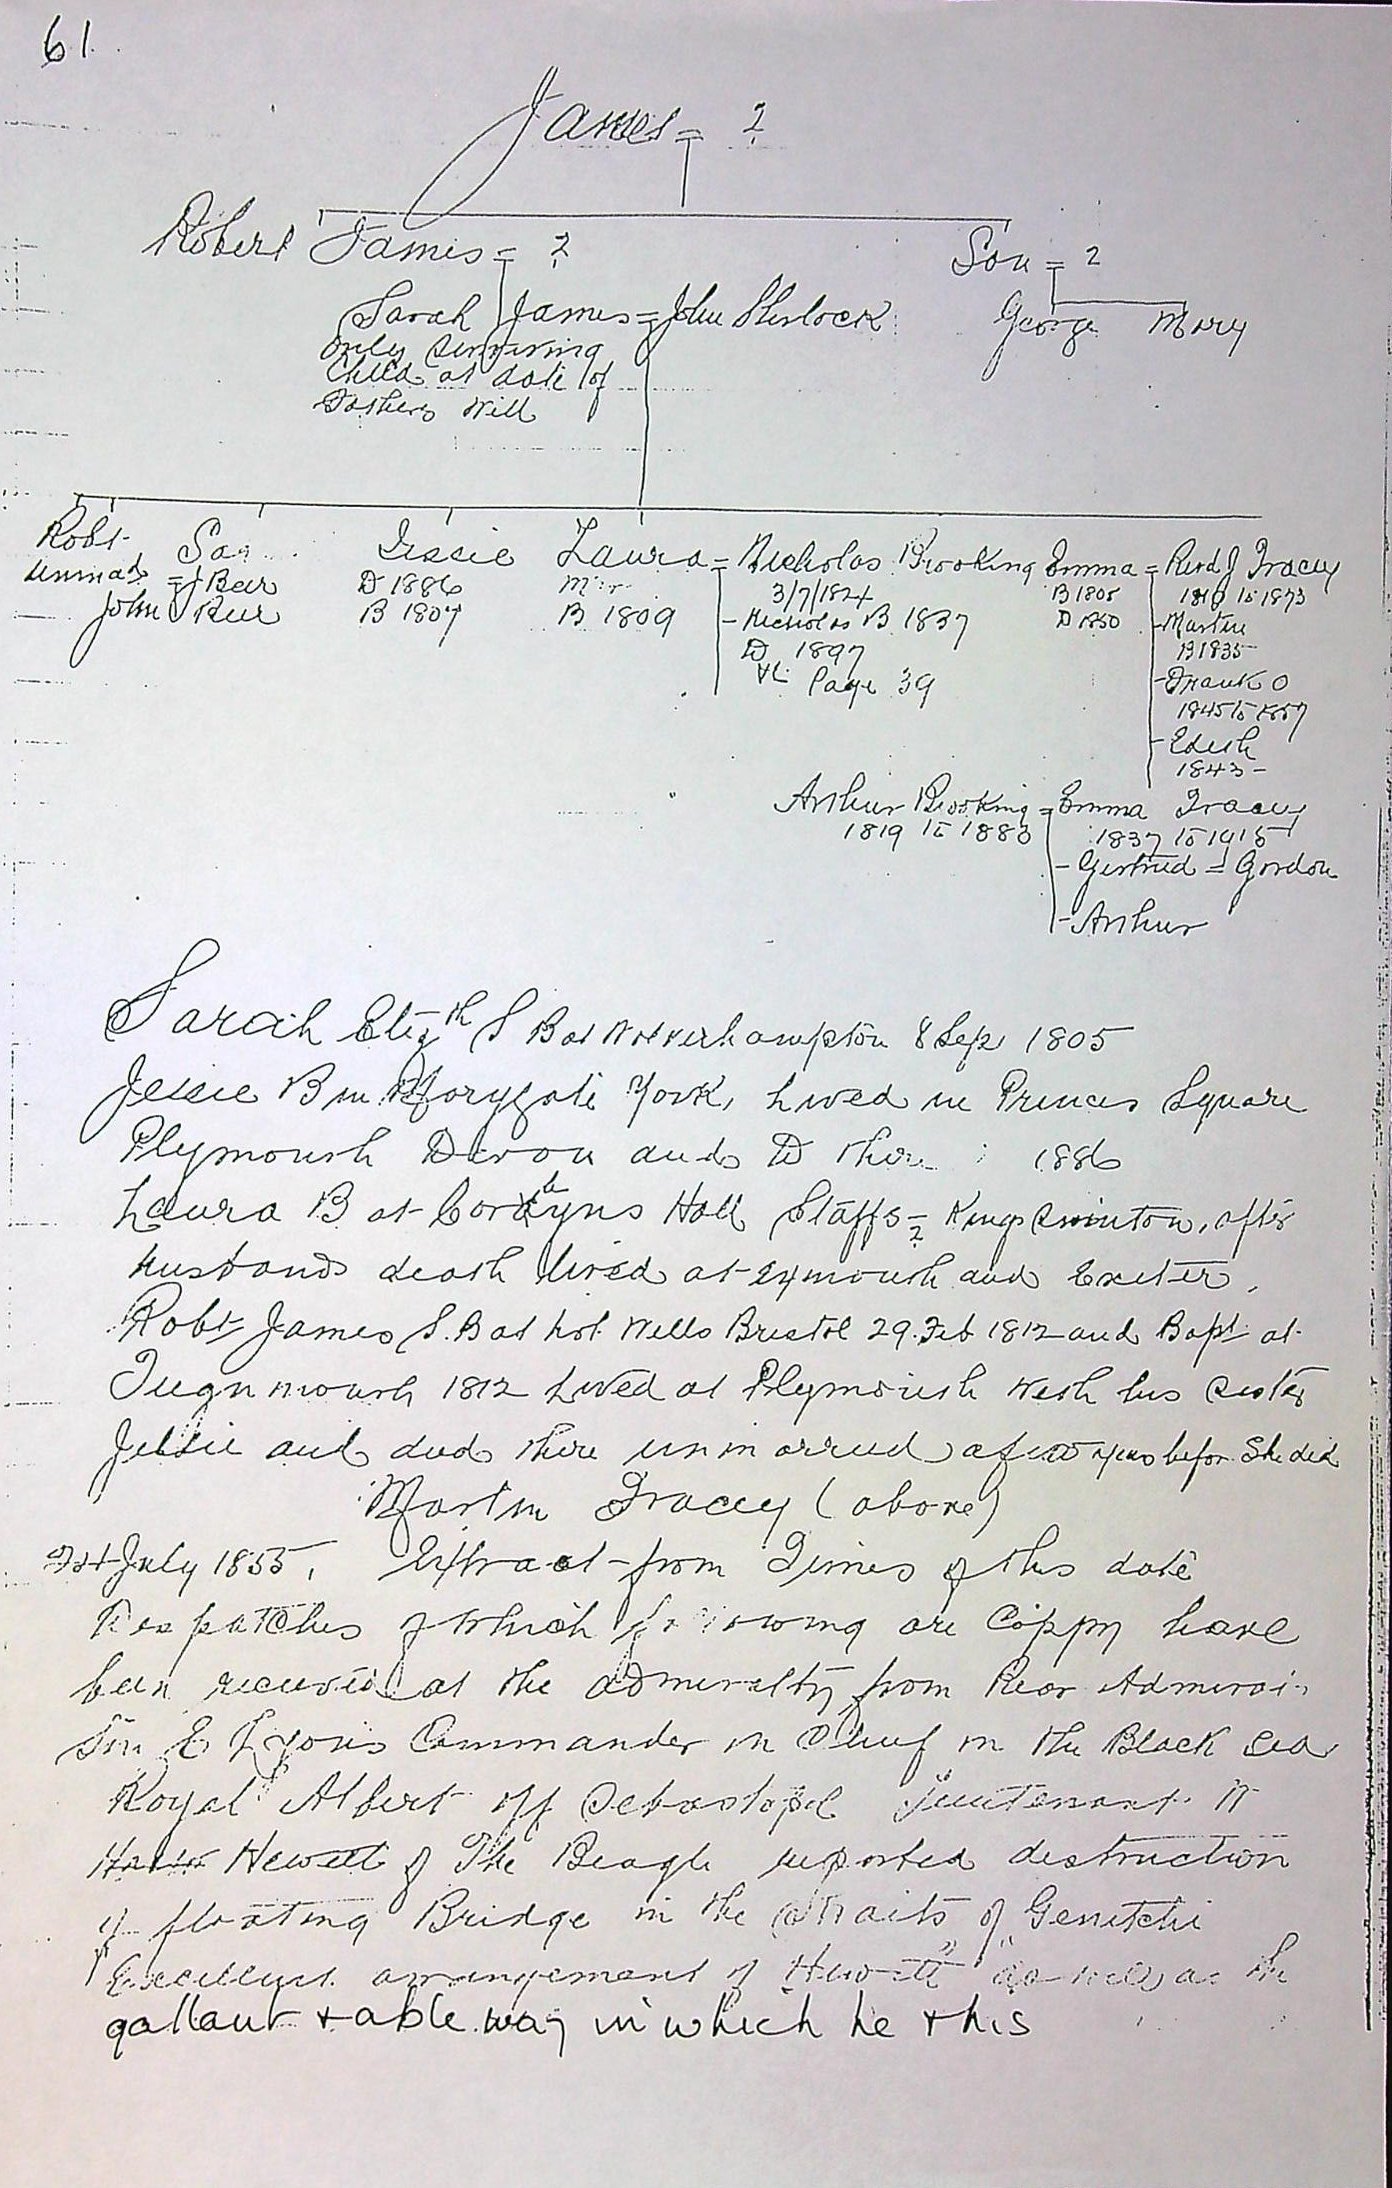 61
James = ?
Robert James = ?
Son = ?
Sarah James = John Sherlock
George Mary
only surviving
Child at date of
Fathers Will
Robt Sar Jessie Laura = Nicholas Brooking Emma = Revd J Tracey
unmard = J Beer D 1886 3/7/1824 B 1805 1810 to 1873
John Beer B 1807 B 1809 - Nicholas B 1837 D 1850 - Martin
D 1897 B 1835
Page 39 - Frank O
1845 to 1857
- Edith
1843 -
Arthur Brooking = Emma Tracey
1819 to 1883 1837 to 1915
- Gertrud = Gordon
- Arthur
Sarah Elizth S B at Wolverhampton 8 Sep 1805
Jessie B in Marygate York, Lived in Princes Square
Plymouth Devon and D there 1886
Laura B at Hall Staffs = Kingswinton, after
husbands death lived at Exmouth and Exeter,
Robt James S. B at hot Wells Bristol 29. Feb 1812 and Bapt at
Teignmouth 1812 Lived at Plymouth with his sister
Jessie and died there unmarried a few years before She did
Martin Tracey (above)
July 1855, Extract from Times of this date
Despatches of which following are Coppy have
been received at the admiralty from Rear Admiral
Sir E Lyons Commander in Chief in the Black Sea
Royal Albert off Sebastopol Lieutenant W
Hewett of The Beagle reported destruction
of floating Bridge in the Straits of Genitchi
Excellent arrangement of Hewett as well as the
gallant + able way in which he + his